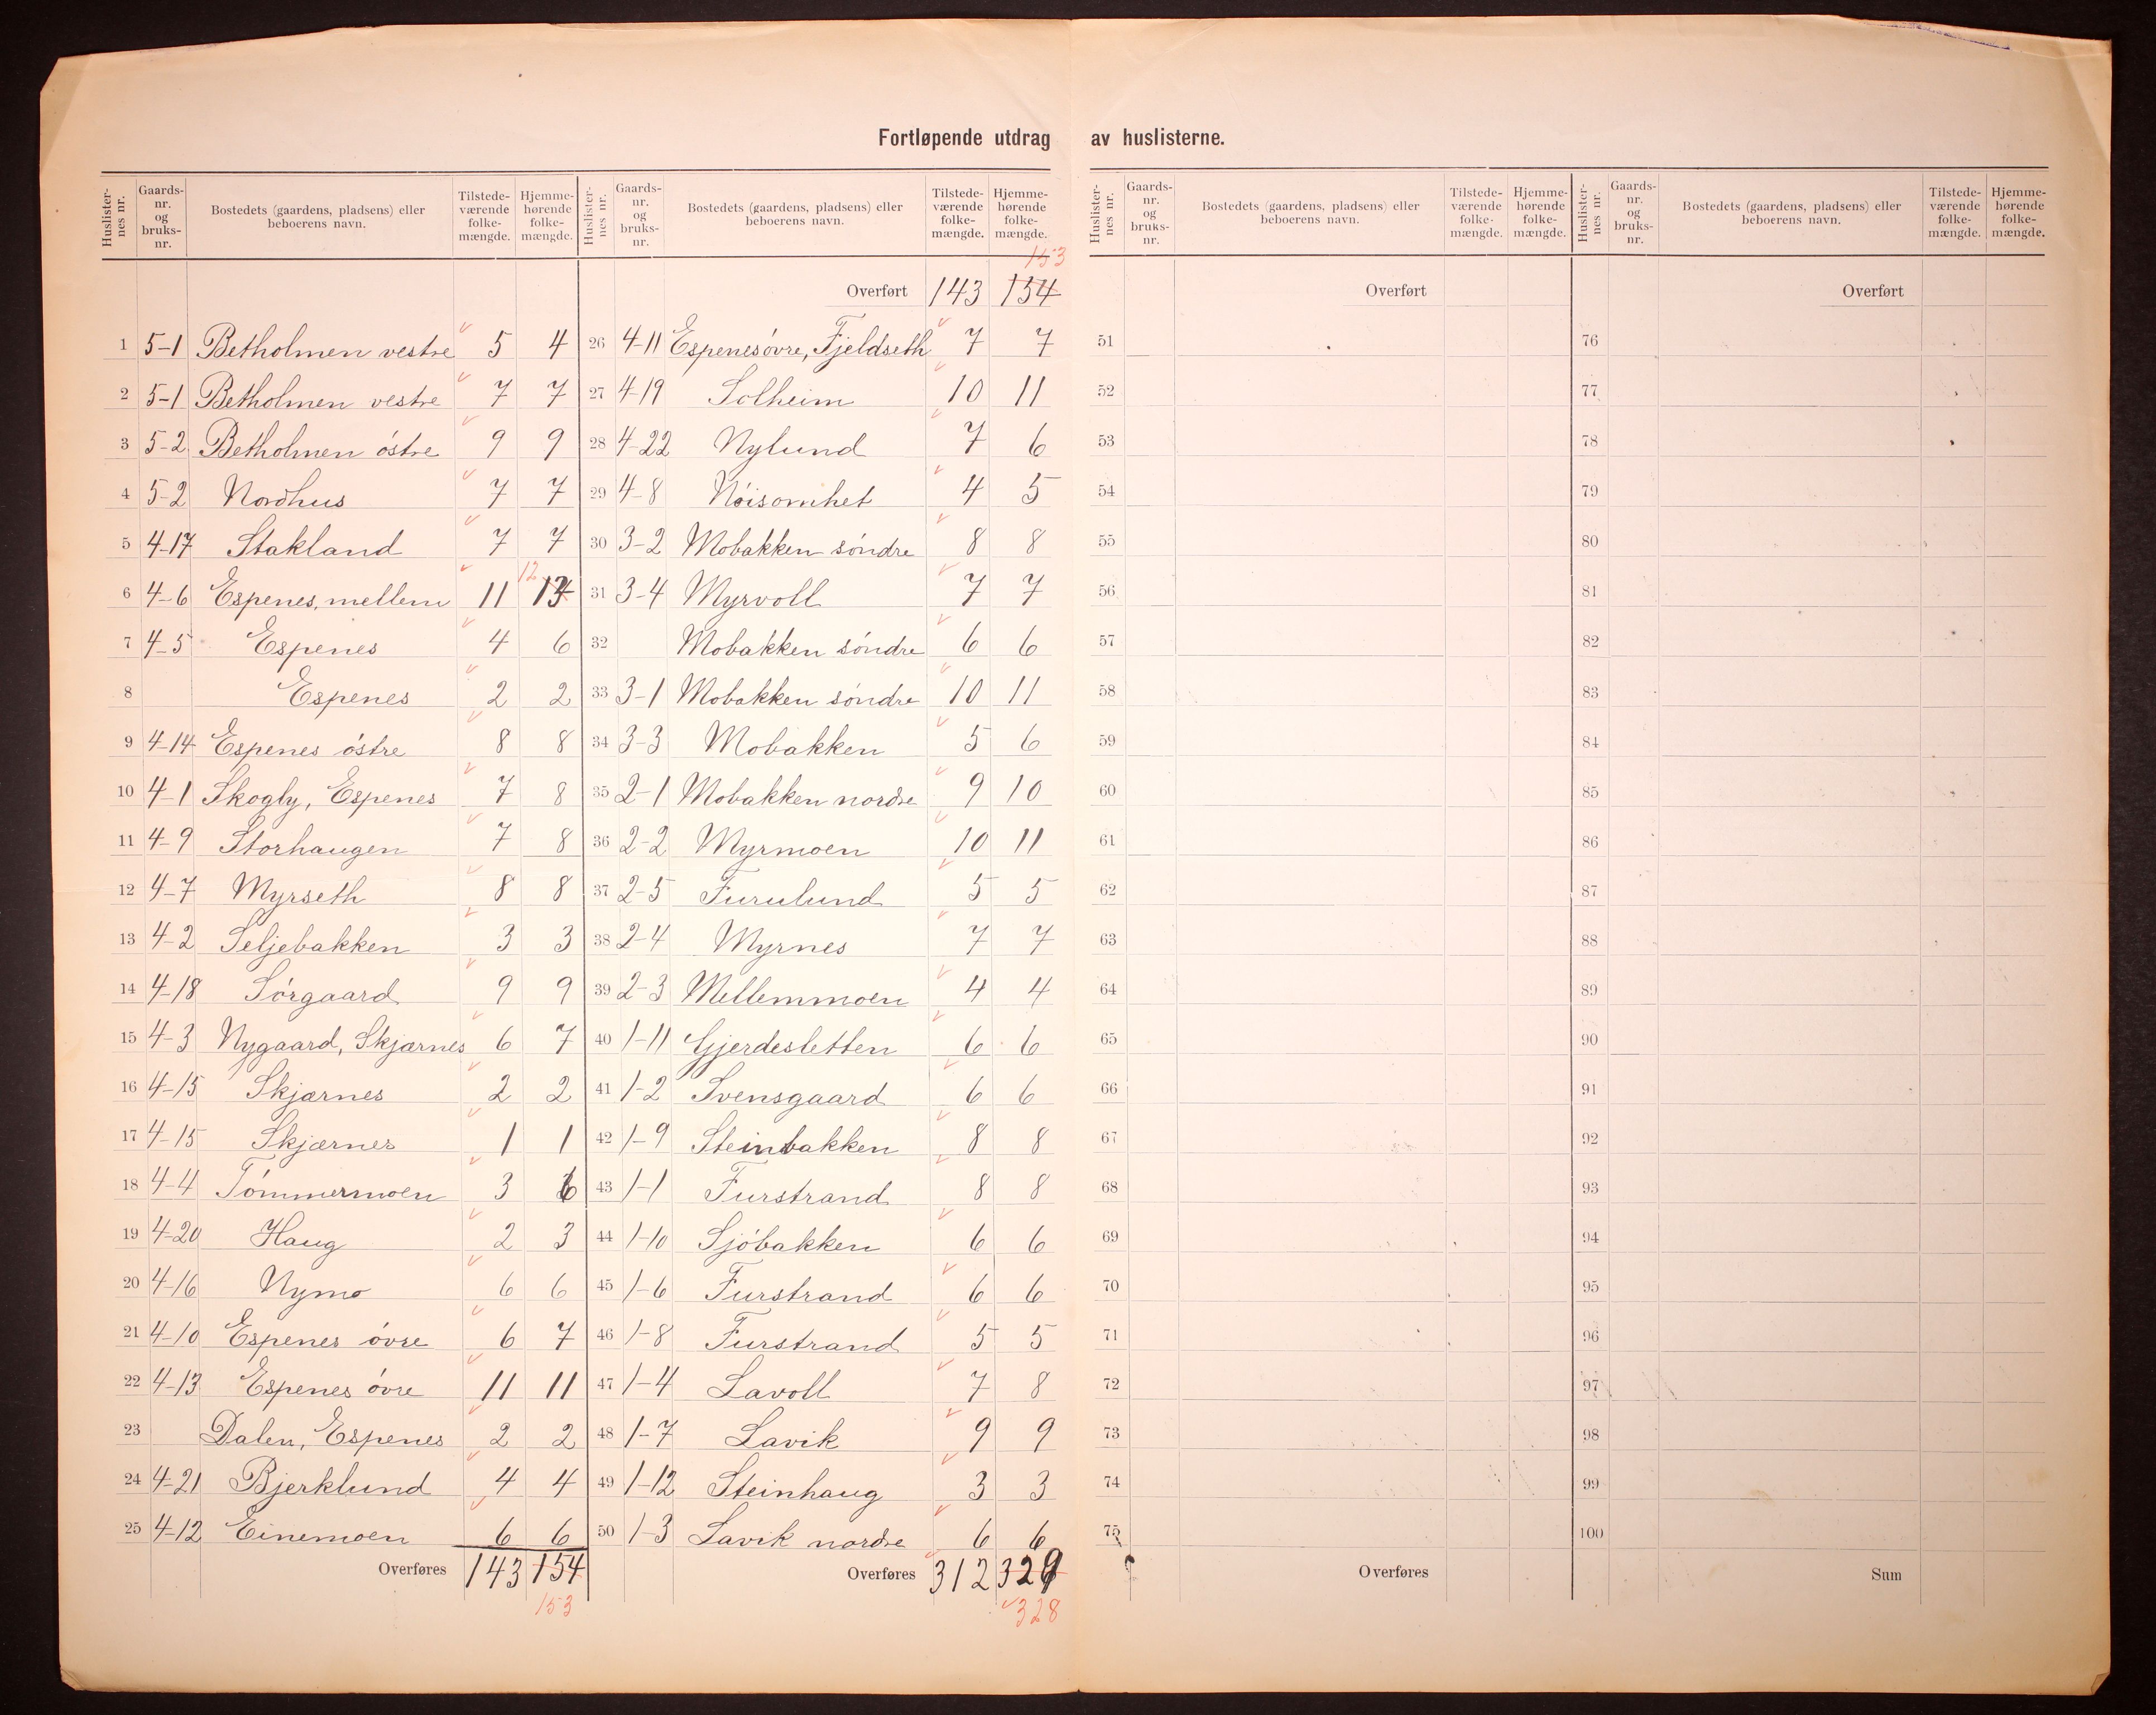 Fortløpende utdrag av huslisterne.
Huslisternes nr. Gaards-nr. og bruks-nr. Bostedets (gaardens, pladsens) eller beboerens navn. Tilstedeværende folkemængde. Hjemmehørende folkemængde.
1 5-1 Betholmen vestre 5 4
2 5-1 Betholmen vestre 7 7
3 5-2 Betholmen östre 9 9
4 5-2 Nordhus 7 7
5 4-17 Stakland 7 7
12
6 4-6 Espenes, mellem 11 13
7 4-5 Espenes 4 6
8 Espenes 2 2
9 4-14 Espenes östre 8 8
10 4-1 Skogly, Espenes 7 8
11 4-9 Storhaugen 7 8
12 4-7 Myrseth 8 8
13 4-2 Seljebakken 3 3
14 4-18 Sörgaard 9 9
15 4-3 Nygaard, Skjærnes 6 7
16 4-15 Skjærnes 2 2
17 4-15 Skjærnes 1 1
18 4-4 Tömmermoen 3 6
19 4-20 Haug 2 3
20 4-16 Nymo 6 6
21 4-10 Espenes övre 6 7
22 4-13 Espenes övre 11 11
23 Dalen, Espenes 2 2
24 4-21 Bjerklund 4 4
25 4-12 Einemoen 6 6
Overføres 143 154
153
Huslisternes nr. Gaards-nr. og bruks-nr. Bostedets (gaardens, pladsens) eller beboerens navn. Tilstedeværende folkemængde. Hjemmehørende folkemængde.
153
Overført 143 154
26 4-11 Espenes övre, Fjeldseth 7 7
27 4-19 Solheim 10 11
28 4-22 Nylund 7 6
29 4-8 Nöisomhet 4 5
30 3-2 Mobakken söndre 8 8
31 3-4 Myrvoll 7 7
32 Mobakken söndre 6 6
33 3-1 Mobakken söndre 10 11
34 3-3 Mobakken 5 6
35 2-1 Mobakken nordre 9 10
36 2-2 Myrmoen 10 11
37 2-5 Furulund 5 5
38 2-4 Myrnes 7 7
39 2-3 Mellemmoen 4 4
40 1-11 Gjerdesletten 6 6
41 1-2 Svensgaard 6 6
42 1-9 Steinbakken 8 8
43 1-1 Furstrand 8 8
44 1-10 Sjöbakken 6 6
45 1-6 Furstrand 6 6
46 1-8 Furstrand 5 5
47 1-4 Lavoll 7 8
48 1-7 Lavik 9 9
49 1-12 Steinhaug 3 3
50 1-3 Lavik nordre 6 6
Overføres 312 329
328
Huslisternes nr. Gaards-nr. og bruks-nr. Bostedets (gaardens, pladsens) eller beboerens navn. Tilstedeværende folkemængde. Hjemmehørende folkemængde.
Overført
51
52
53
54
55
56
57
58
59
60
61
62
63
64
65
66
67
68
69
70
71
72
73
74
75
Overføres
Huslisternes nr. Gaards-nr. og bruks-nr. Bostedets (gaardens, pladsens) eller beboerens navn. Tilstedeværende folkemængde. Hjemmehørende folkemængde.
Overført
76
77
78
79
80
81
82
83
84
85
86
87
88
89
90
91
92
93
94
95
96
97
98
99
100
Sum